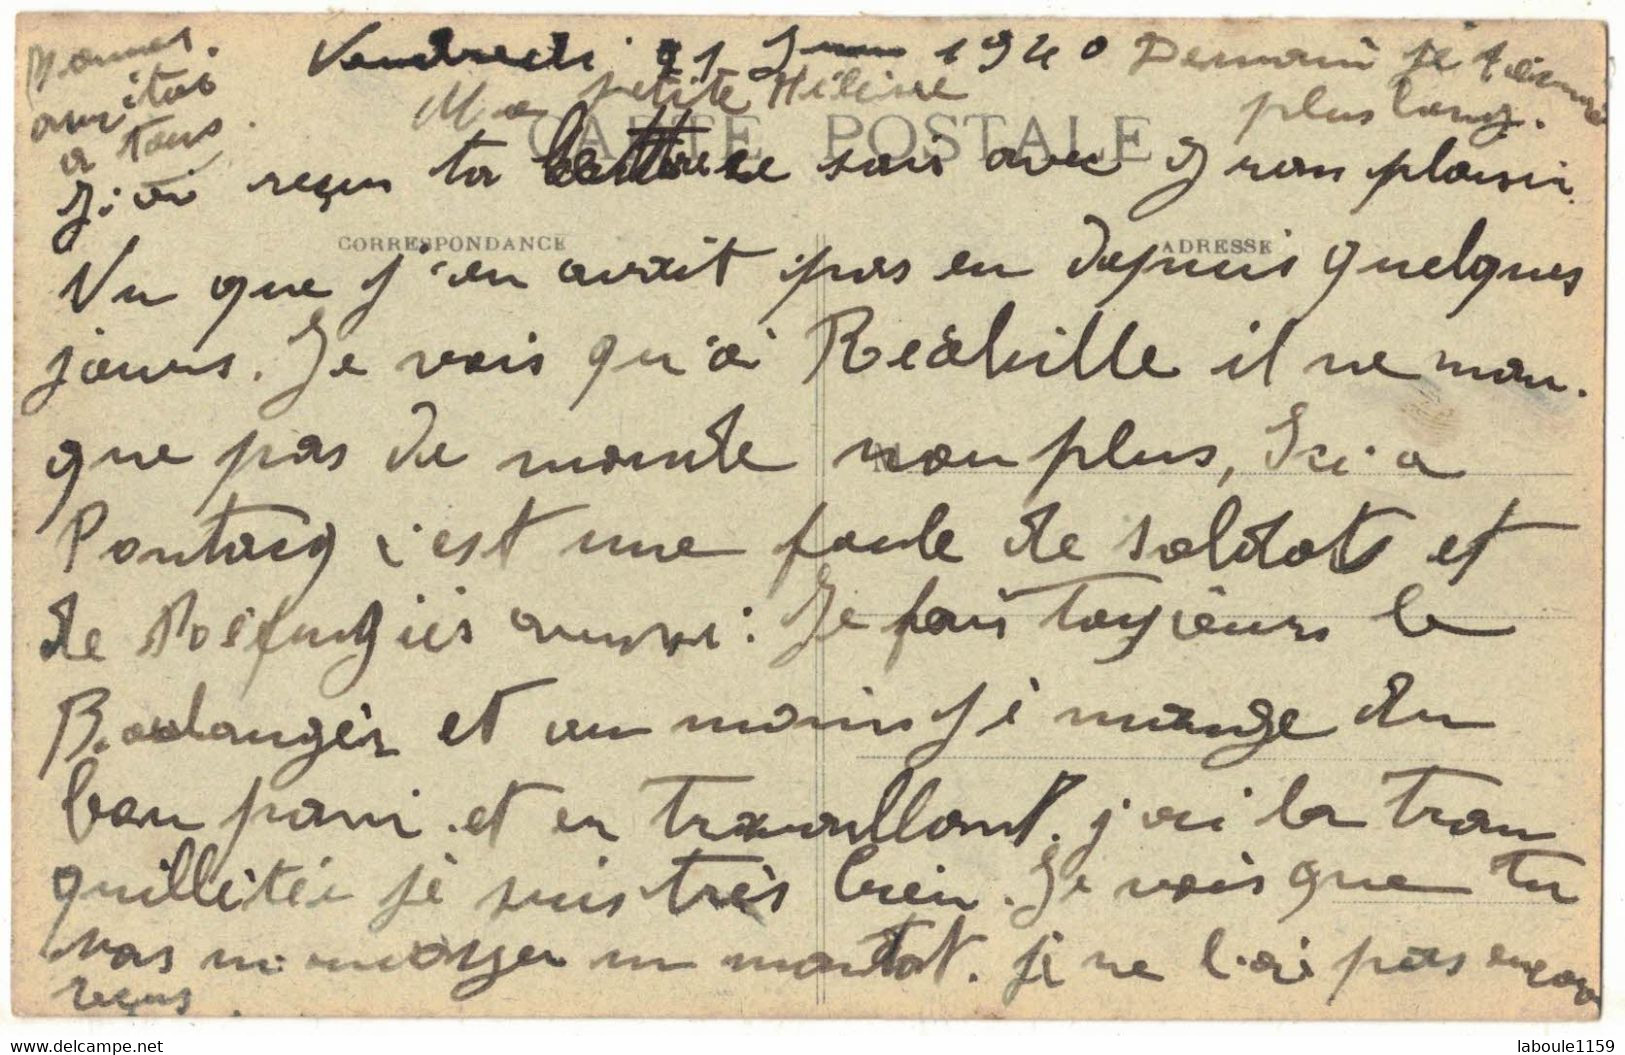 Vendredi 21 Juin 1940
Ma petite Hélène
CARTE POSTALE
J'ai reçu ta lettre ce soir avec gran plaisir.
CORRESPONDANCE
ADRESSE
Vu que j'en avait pas eu depuis quelques
jours. Je vois qu'a Réalville il ne man.
que pas de monde non plus, Ici a
Pontacq c'est une foule de soldats et
de Réfugiés aussi. Je fais toujours le
Boulanger et au moins je mange du
bon pain et en travaillant. j'ai la tran
quillitée je suis très bien. Je vois que tu
vas m'envoyer un mandat. je ne l'ai pas encore
reçus.
Demain je t'écrirai
plus long.
Bonnes
amitiés
a tous.
www.delcampe.net
laboule1159